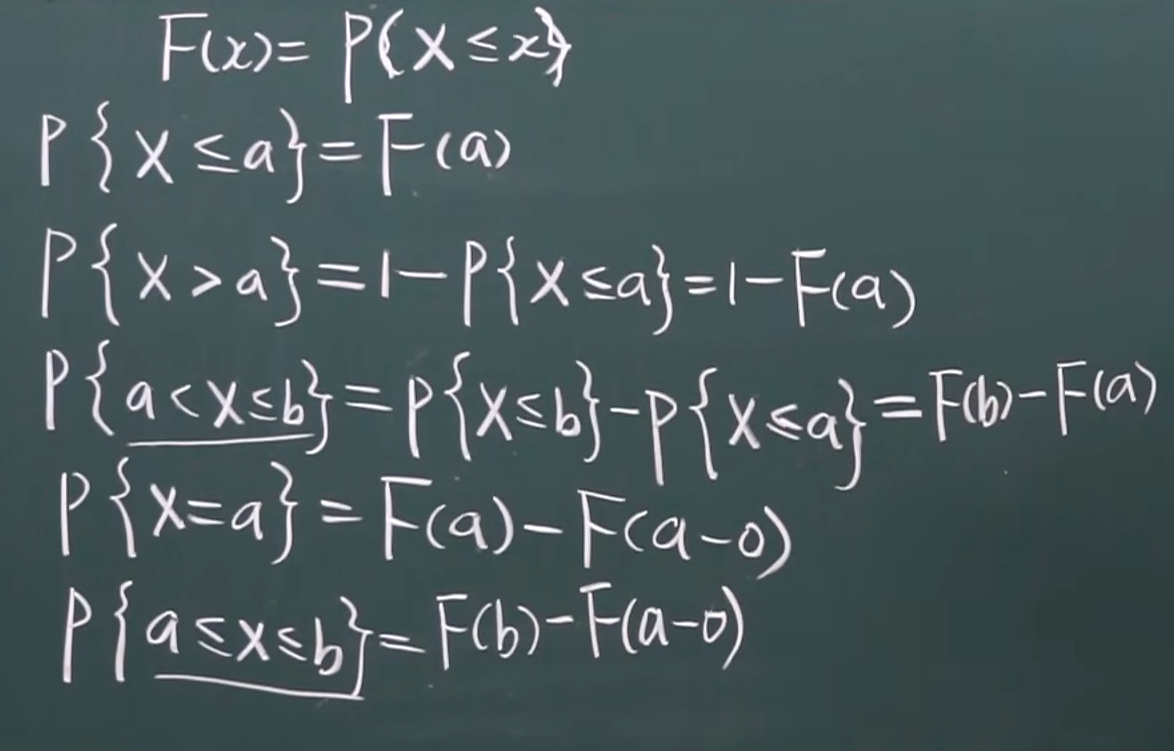 F(x)= P{X≤x}
P{X≤a}=F(a)
P{X>a}=1-P{X≤a}=1-F(a)
P{a<X≤b}=P{X≤b}-P{X≤a}=F(b)-F(a)
P{X=a}=F(a)-F(a-0)
P{a≤X≤b}=F(b)-F(a-0)